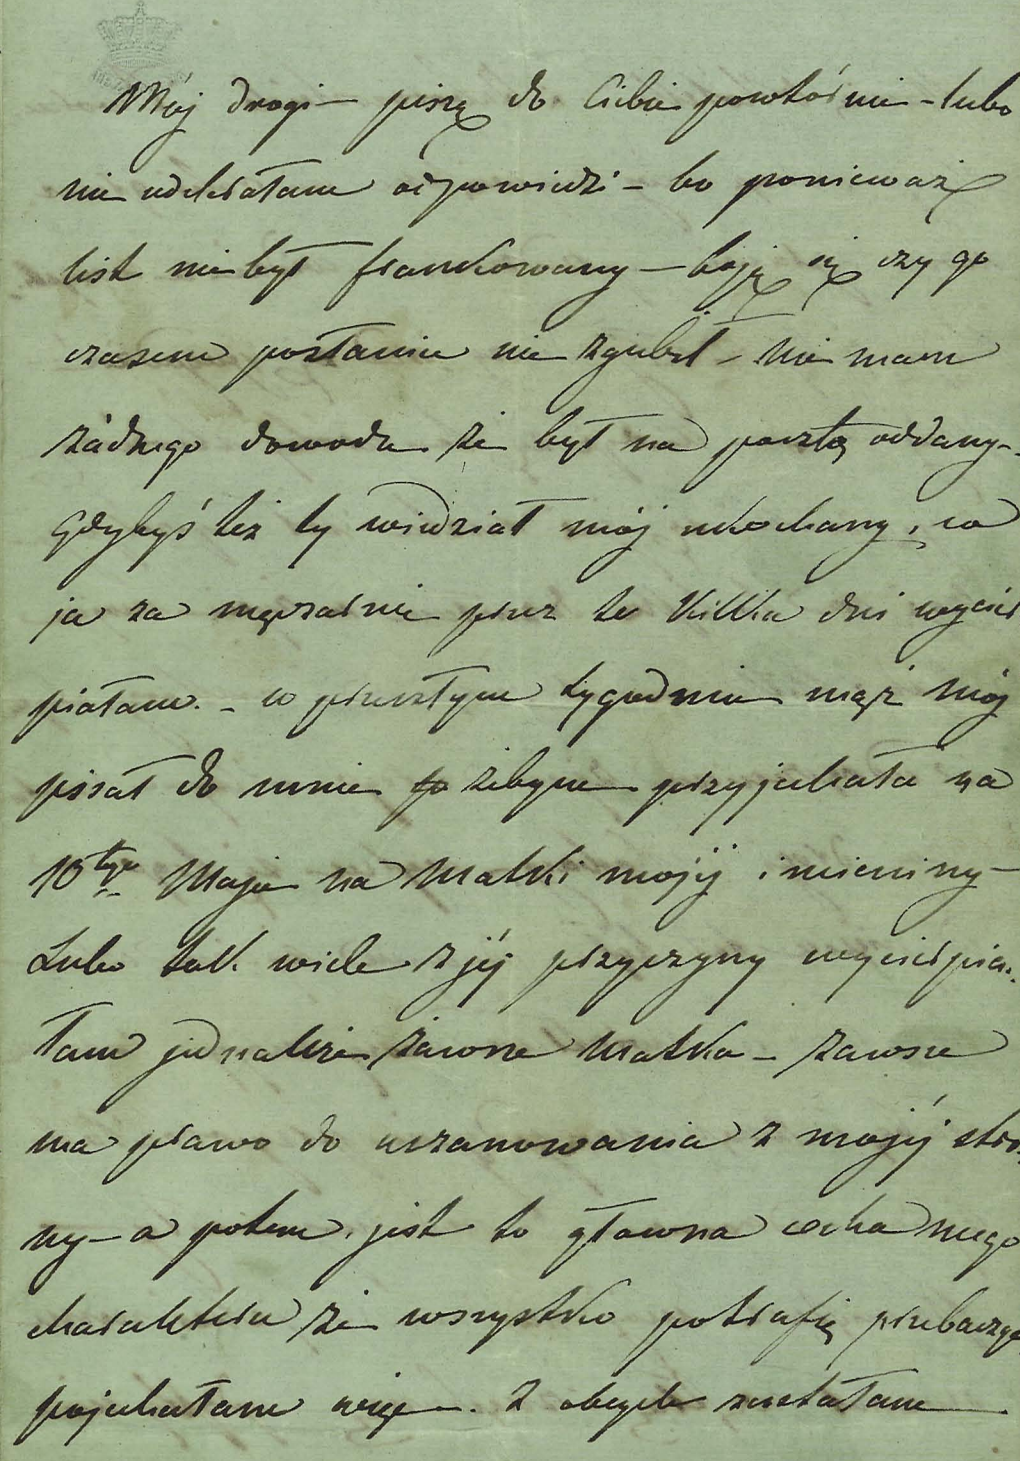 Mój drogi – piszę do Ciebie powtórnie – lubo
nie odebrałam odpowiedzi – bo ponieważ
list nie był frankowany – boję się czy go
czasem posłaniec nie zgubił – nie mam
żadnego dowodu że był na pocztę oddany –
Gdybyś też ty wiedział mój ukochany, co
ja za męczarnie przez te kilka dni wycier
piałam. – w przeszłym tygodniu mąż mój
pisał do mnie żebym przyjechała na
10tego Maja na Matki mojéj imieniny –
Lubo tak wiele z jéj przyczyny wycierpia-
łam jednakże zawsze Matka – zawsze
ma prawo do uszanowania z mojéj stro-
ny – a potem, jest to główna cecha mego
charakteru że wszystko potrafię przebaczyć
pojechałam więc –. Z obojga zastałam